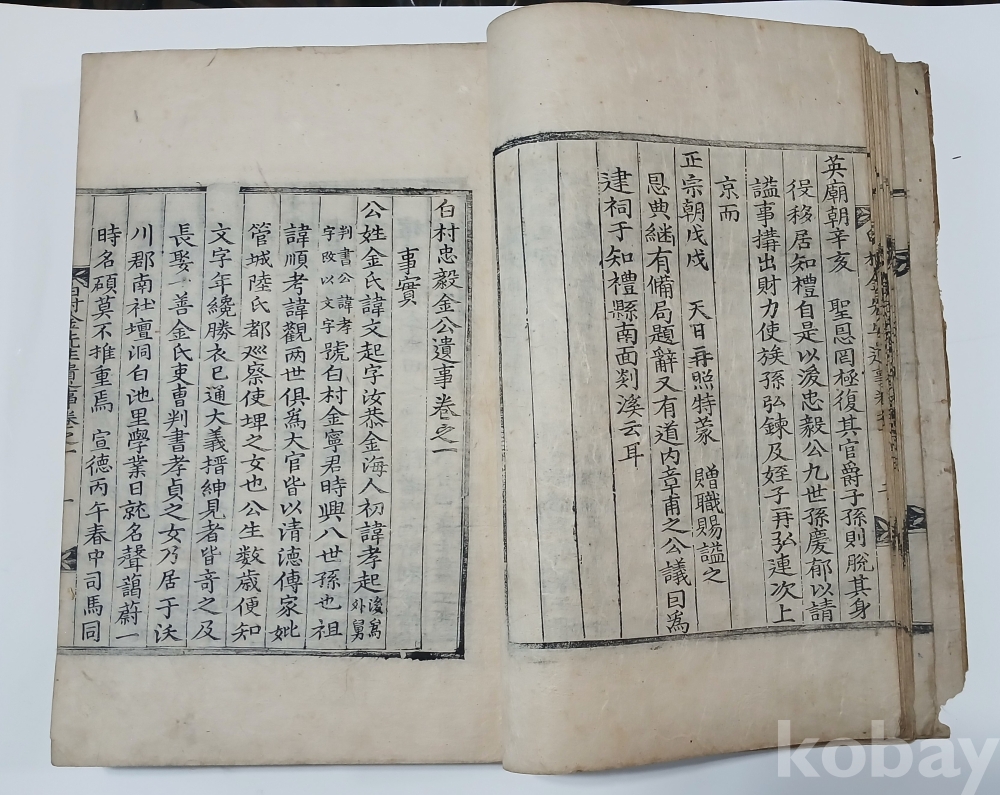 英廟朝辛亥　聖恩罔極復其官爵子孫則脫其身
役移居知禮自是以後忠毅公九世孫慶郁以請
謚事搆出財力使族孫弘鍊及姪子再弘連次上
京而
正宗朝戊戌　天日再照特蒙　贈職賜謚之
恩典継有備局題辭又有道內章甫之公議目為
建祠于知禮縣南面剡溪云耳
白村忠毅金公遺事卷之一
事實
公姓金氏諱文起字汝恭金海人初諱孝起後為外舅
判書公諱孝字改以文字號白村金寧君時興八世孫也祖
諱順考諱觀两世俱為大官皆以清德傳家妣
管城陸氏都巡察使埤之女也公生数歲便知
文字年纔勝衣已通大義搢紳見者皆奇之及
長娶一善金氏吏曹判書孝貞之女乃居于沃
川郡南社壇洞白池里學業日就名聲藹蔚一
時名碩莫不推重焉　宣德丙午春中司馬同
白村金先生遺事卷之一　一
kobay